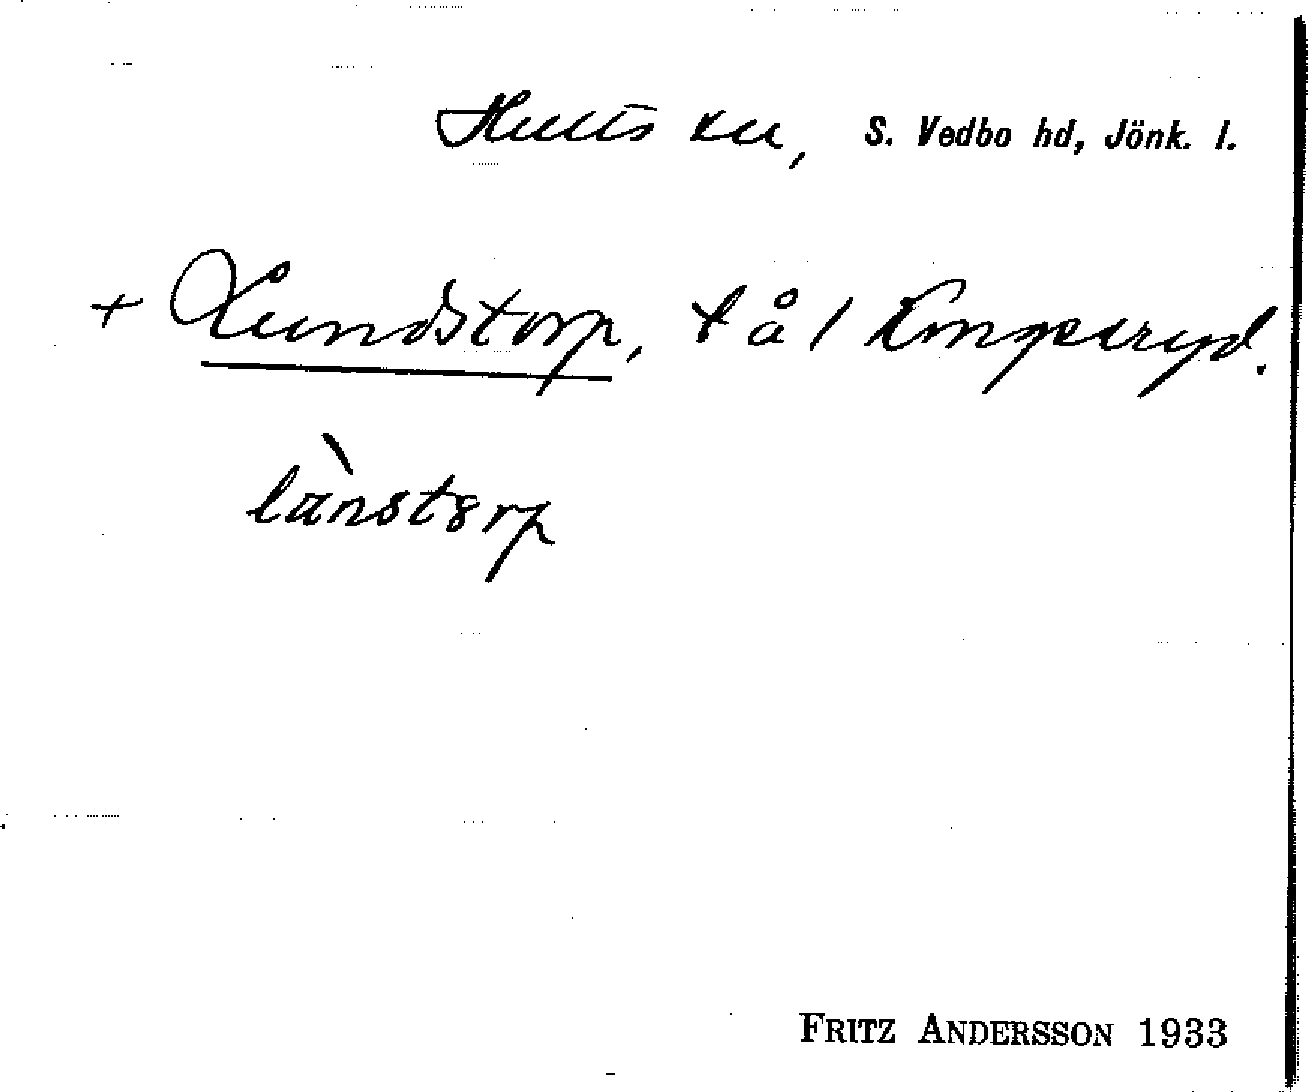 Hults sn, S. Vedbo hd, Jönk. l.
+ Lundstorp, t å / Kongseryd.
lànstorp
FRITZ ANDERSSON 1933